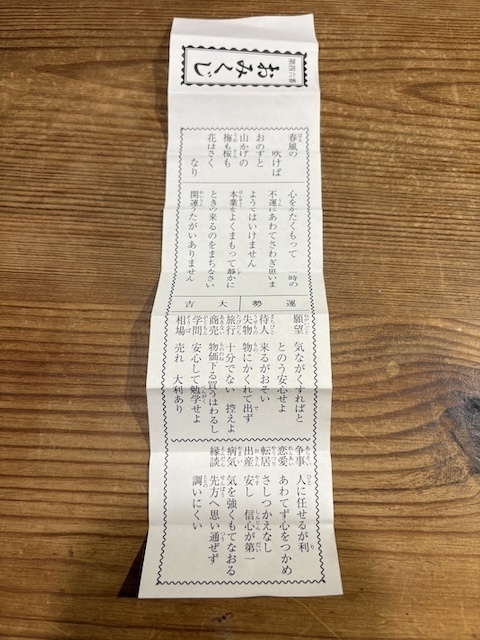 第四六番
おみくじ
春風の
吹けば
おのずと
山かげの
梅も桜も
花はさく
なり
心をかたくもって 一時の
不運にあわてさわぎ思いま
ようではいけません
本業をよくまもって静かに
ときの来るのをまちなさい
開運うたがいありません
運勢 大吉
願望 気ながくすればと
とのう安心せよ
待人 来るがおそい
失物 物にかくれて出ず
旅行 十分でない 控えよ
商売 物価下る買うはわるし
学問 安心して勉学せよ
相場 売れ 大利あり
争事 人に任せるが利
恋愛 あわてず心をつかめ
転居 さしつかえなし
出産 安し 信心が第一
病気 気を強くもてなおる
縁談 先方へ思い通ぜず
調いにくい